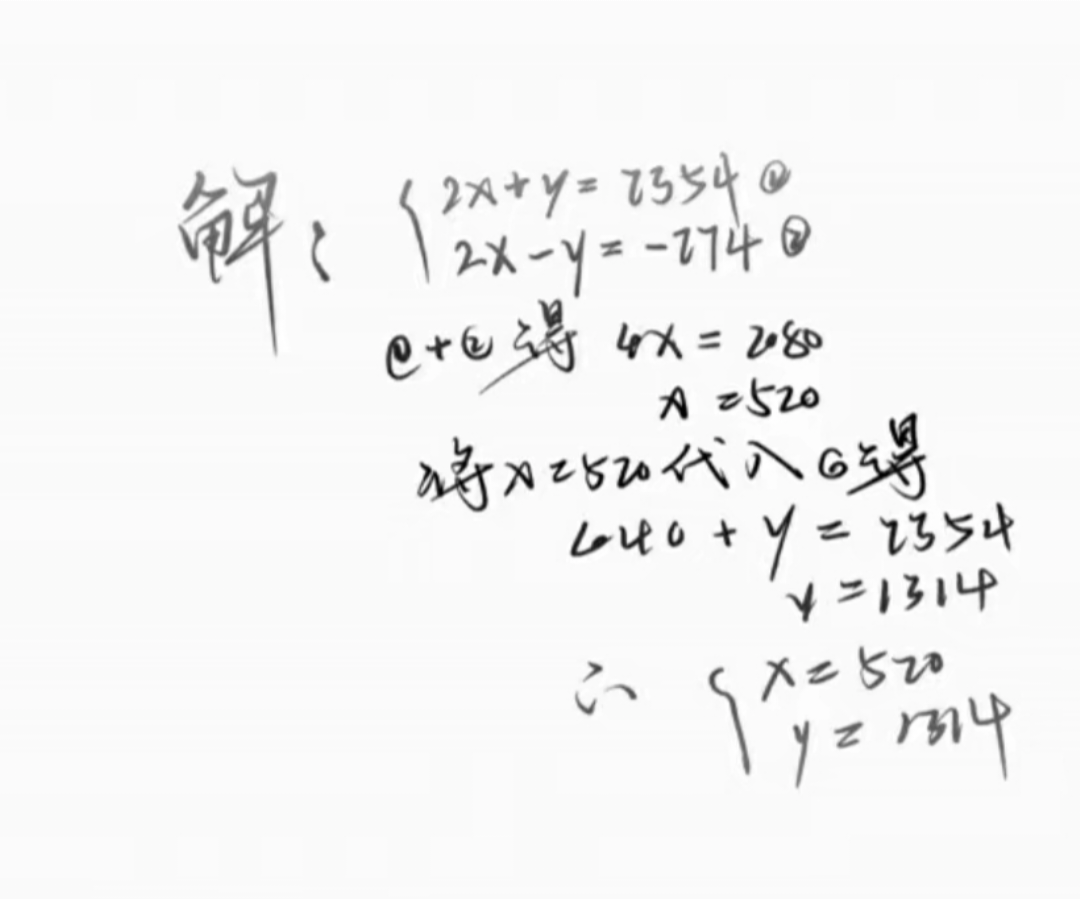 解: { 2x+y=2354 ①
2x-y=-274 ②
①+②得 4x=2080
x=520
将x=520代入①得
1040+y=2354
y=1314
∴ { x=520
y=1314